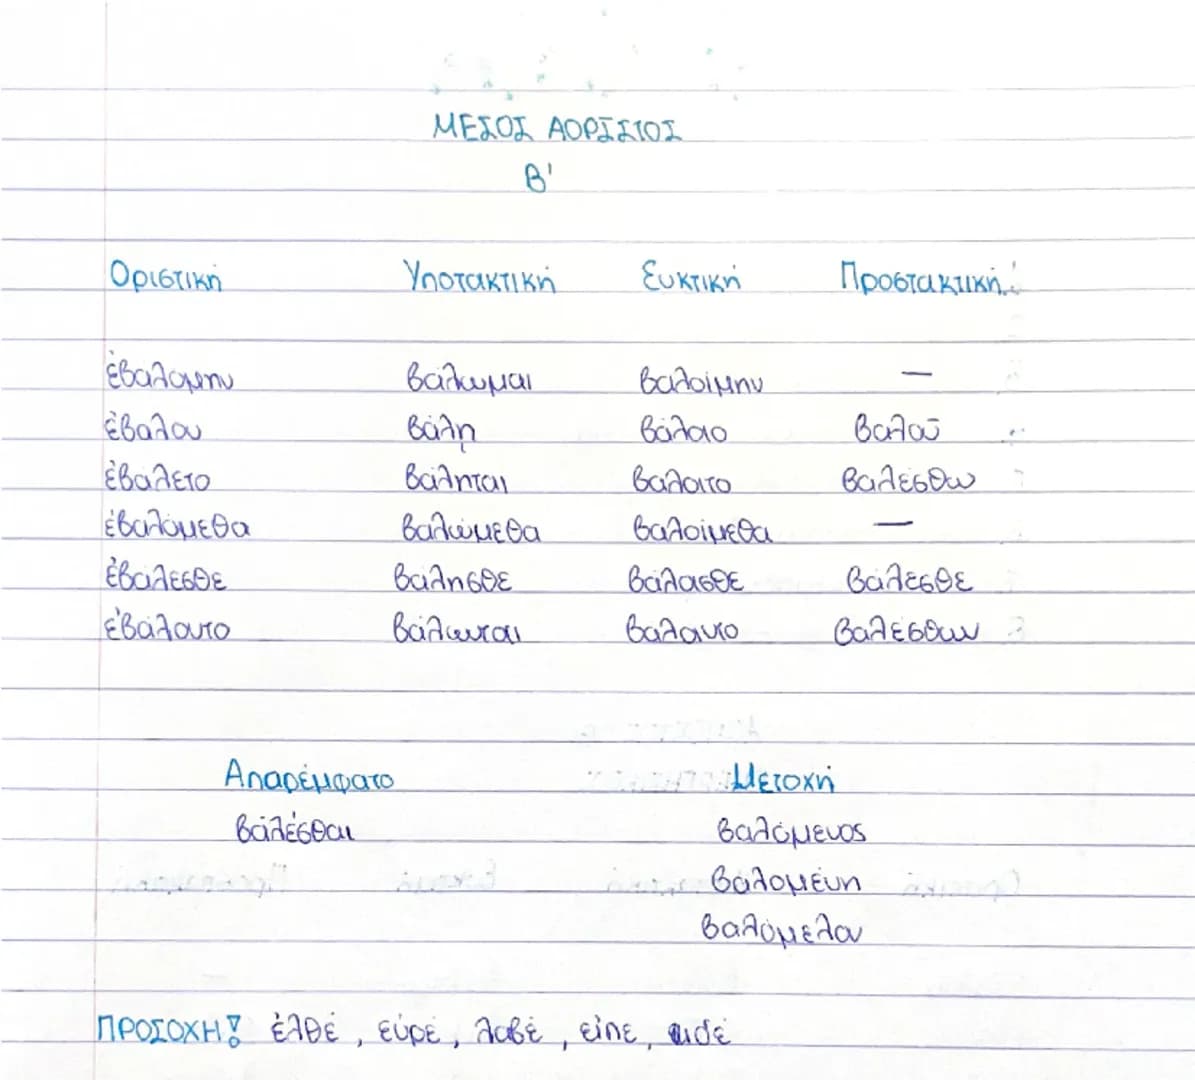 ΜΕΣΟΣ ΑΟΡΙΣΤΟΣ
Β'
Οριστική Υποτακτική Ευκτική Προστακτική
ἐβαλόμην βάλωμαι βαλοίμην —
ἐβάλου βάλῃ βάλοιο βαλοῦ
ἐβάλετο βάληται βάλοιτο βαλέσθω
ἐβαλόμεθα βαλώμεθα βαλοίμεθα —
ἐβάλεσθε βάλησθε βάλοισθε βάλεσθε
ἐβάλοντο βάλωνται βάλοιντο βαλέσθων
Απαρέμφατο Μετοχή
βαλέσθαι βαλόμενος
βαλομένη
βαλόμελον
ΠΡΟΣΟΧΗ! ἐλθέ, εὑρέ, λαβέ, εἰπέ, ἰδέ